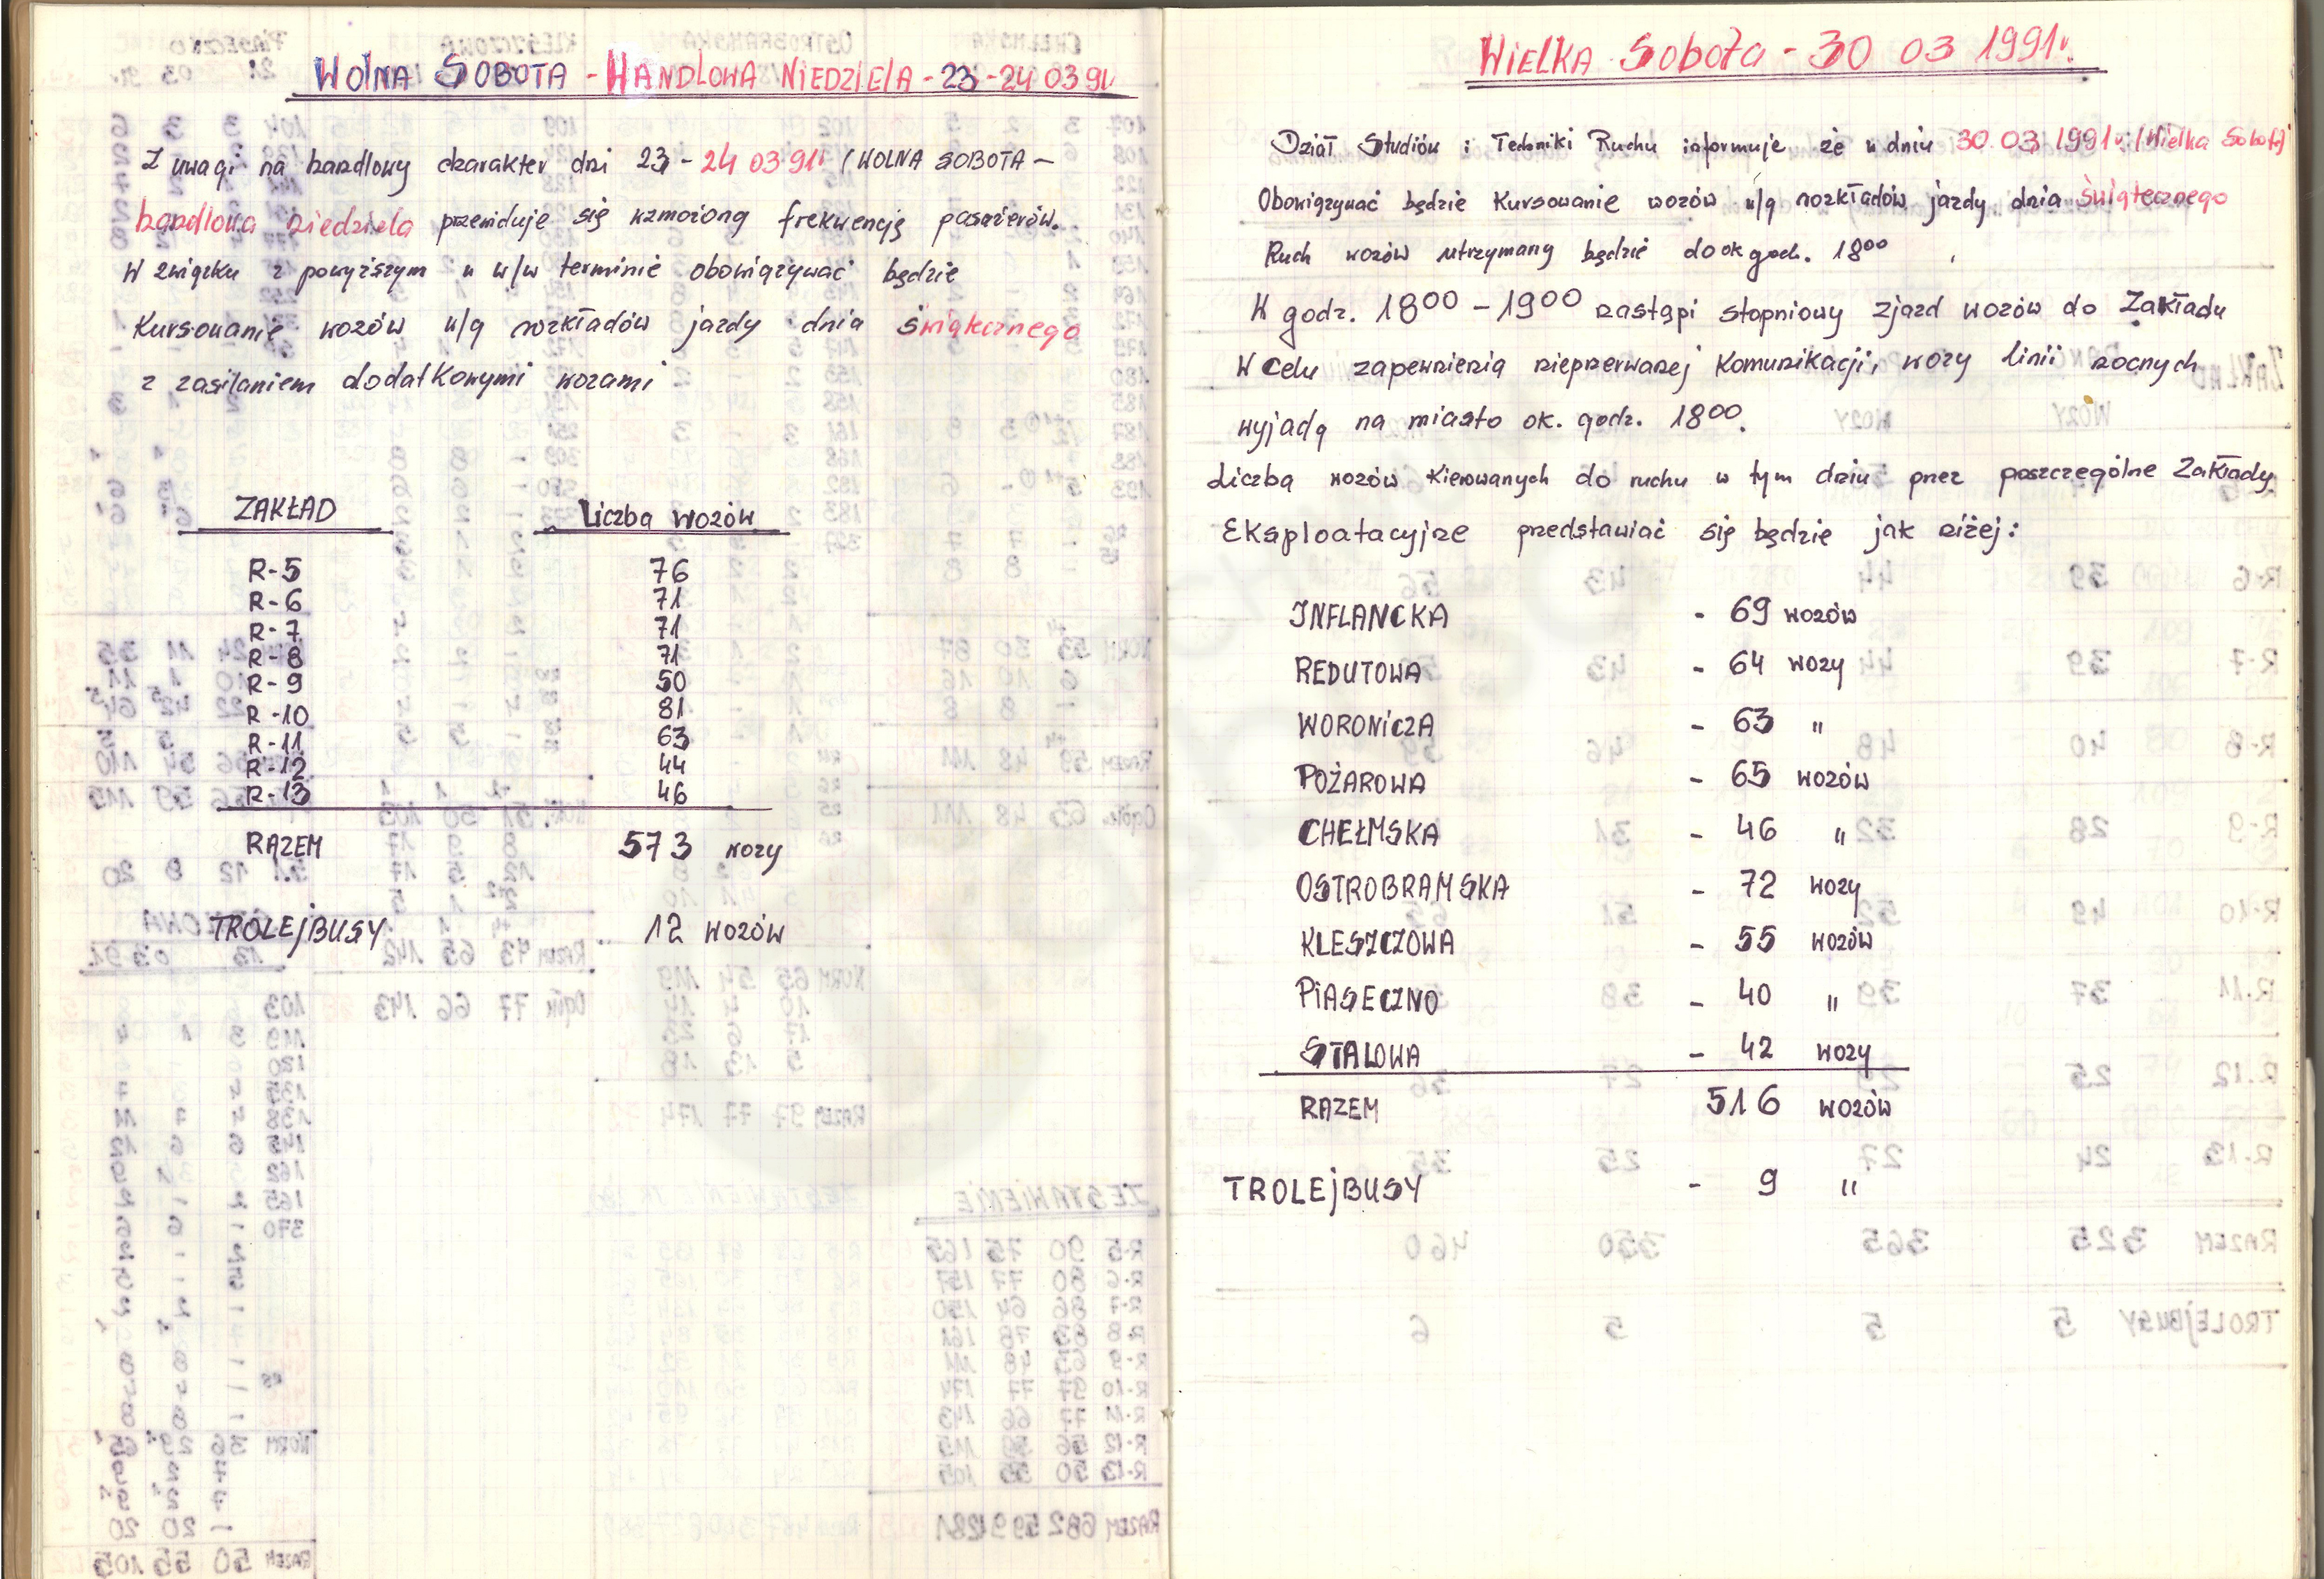 WOLNA SOBOTA - HANDLOWA NIEDZIELA - 23-24 03 91r
Z uwagi na handlowy charakter dni 23 - 24 03 91r (WOLNA SOBOTA -
handlowa niedziela przewiduje się wzmożoną frekwencję pasażerów.
W związku z powyższym w w/w terminie obowiązywać będzie
Kursowanie wozów w/g rozkładów jazdy dnia świątecznego
z zasilaniem dodatkowymi wozami
ZAKŁAD Liczba wozów
R-5 76
R-6 71
R-7 71
R-8 71
R-9 50
R-10 81
R-11 63
R-12 44
R-13 46
RAZEM 573 wozy
TROLEJBUSY 12 wozów
WIELKA Sobota - 30 03 1991r.
Dział Studiów i Techniki Ruchu informuje że w dniu 30.03.1991r. (Wielka Sobota)
Obowiązywać będzie Kursowanie wozów w/g rozkładów jazdy dnia Świątecznego
Ruch wozów utrzymany będzie do ok godz. 18⁰⁰
W godz. 18⁰⁰ - 19⁰⁰ nastąpi stopniowy zjazd wozów do Zakładu
W Celu zapewnienia nieprzerwanej Komunikacji, wozy linii nocnych
wyjadą na miasto ok. godz. 18⁰⁰.
Liczba wozów Kierowanych do ruchu w tym dniu przez poszczególne Zakłady
Eksploatacyjne przedstawiać się będzie jak niżej:
INFLANCKA - 69 wozów
REDUTOWA - 64 wozy
WORONICZA - 63 "
POŻAROWA - 65 wozów
CHEŁMSKA - 46 "
OSTROBRAMSKA - 72 wozy
KLESZCZOWA - 55 wozów
PIASECZNO - 40 "
STALOWA - 42 wozy
RAZEM 516 wozów
TROLEJBUSY - 9 "